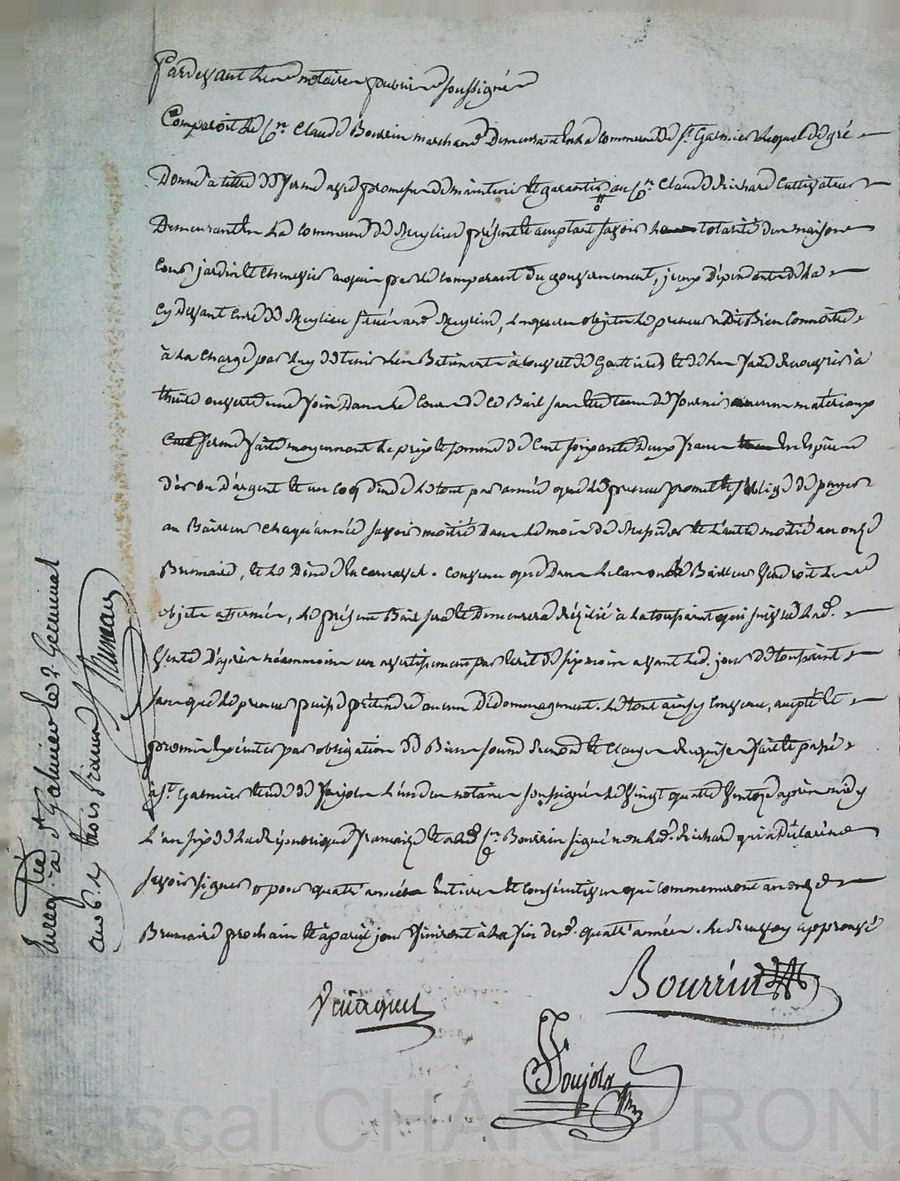 Pardevant les notaires publics soussignés
Comparoit le Cn. Claude Bourrin marchand demeurant en la commune de St. Galmier lequel de gré
donne à titre de ferme avec promesse de maintenir et garantir au Cn. Claude Richard cultivateur
demeurant en la commune de Meylieu présent et acceptant savoir la totalité d'une maison
cour jardin et chenevier acquis par le comparant du gouvernement, jceux dépendants de la
cy devant cure de Meylieu situés aud. Meylieu, lesquels objets le preneur a dit bien connoitre
à la charge par luy de tenir les batiments à couvert de gouttières et de les faire recouvrir à
thuile ouverte une fois dans le cours de ce bail sans être tenu de fournir aucuns matériaux
cette ferme faite moyennant le prix et somme de cent soixante deux francs en espèces
d'or ou d'argent et un coq dinde le tout par année que le preneur promet et s'oblige de payer
au bailleur chaque année savoir moitié dans le mois de messidor et l'autre moitié au onze
Brumaire, et le dinde en carnaval. convenu que dans le cas où le Bailleur vendroit les
objets affermés, le présent Bail sera et demeurera résilié à la toussaint qui suivra lad.
vente d'après néanmoins un avertissement par écrit de six mois avant led. jour de toussaint
sans que le preneur puisse prétendre aucun dédomagement. le tout ainsy convenu, accepté et
promis exécuter par obligation de Biens soumis renon. et clauses requises fait et passé
à St. Galmier étude de Voujols l'un des notaires soussignés le vingt quatre ventose après midy
l'an six de la République française et a led. Cn. Bourrin signé non led. Richard qui a déclaré ne
savoir signer o pour quatre années entières et consécutives qui commenceront au onze
Brumaire prochain et à pareil jour finiront à la fin desd. quatre années. le renvoy approuvé
Bourrin
Voujols
Enreg. à St Galmier le 2 Germinal
an 6
trois francs